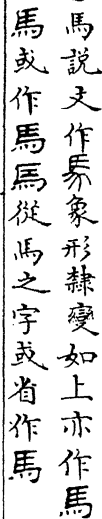 馬説文作𢒠象形隷變如上亦作馬
馬或作馬馬從馬之字或省作馬